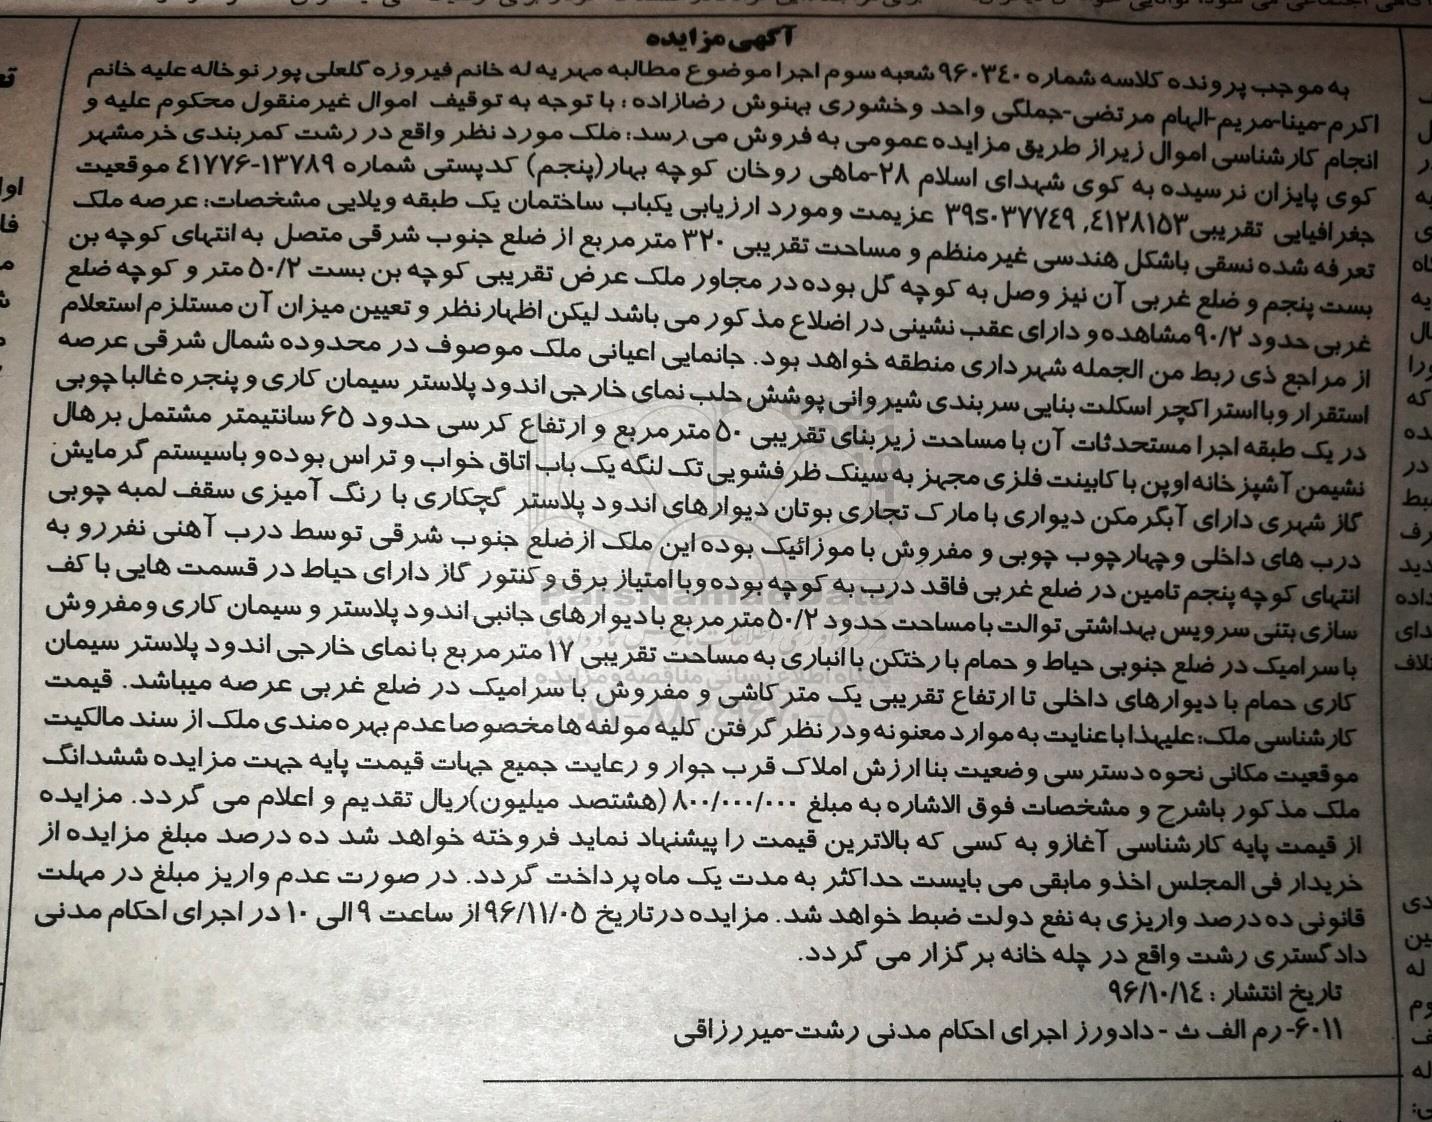 آگهی مزایده
به موجب پرونده کلاسه شماره ۹۶۰۳۴۰ شعبه سوم اجرا موضوع مطالبه مهریه له خانم فیروزه گلعلی پور نوخاله علیه خانم
اکرم-مینا-مریم-الهام مرتضی-جملگی واحد وخشوری بهنوش رضازاده ؛ با توجه به توقیف اموال غیرمنقول محکوم علیه و
انجام کارشناسی اموال زیر از طریق مزایده عمومی به فروش می رسد؛ ملک مورد نظر واقع در رشت کمربندی خرمشهر
کوی پایزان نرسیده به کوی شهدای اسلام ۲۸-ماهی روخان کوچه بهار(پنجم) کدپستی شماره ۱۳۷۸۹-۴۱۷۷۶ موقعیت
جغرافیایی تقریبی۴۱۲۸۱۵۳, ۳۹s۰۳۷۷۴۹ عزیمت ومورد ارزیابی یکباب ساختمان یک طبقه ویلایی مشخصات؛ عرصه ملک
تعرفه شده نسقی باشکل هندسی غیرمنظم و مساحت تقریبی ۳۲۰ مترمربع از ضلع جنوب شرقی متصل به انتهای کوچه بن
بست پنجم و ضلع غربی آن نیز وصل به کوچه گل بوده در مجاور ملک عرض تقریبی کوچه بن بست ۵۰/۲ متر و کوچه ضلع
غربی حدود ۹۰/۲ مشاهده و دارای عقب نشینی در اضلاع مذکور می باشد لیکن اظهارنظر و تعیین میزان آن مستلزم استعلام
از مراجع ذی ربط من الجمله شهرداری منطقه خواهد بود. جانمایی اعیانی ملک موصوف در محدوده شمال شرقی عرصه
استقرار وبا استراکچر اسکلت بنایی سربندی شیروانی پوشش حلب نمای خارجی اندود پلاستر سیمان کاری و پنجره غالبا چوبی
در یک طبقه اجرا مستحدثات آن با مساحت زیربنای تقریبی ۵۰ مترمربع و ارتفاع کرسی حدود ۶۵ سانتیمتر مشتمل برهال
نشیمن آشپزخانه اوپن با کابینت فلزی مجهز به سینک ظرفشویی تک لنگه یک باب اتاق خواب و تراس بوده و باسیستم گرمایش
گاز شهری دارای آبگرمکن دیواری با مارک تجاری بوتان دیوارهای اندود پلاستر گچکاری با رنگ آمیزی سقف لمبه چوبی
درب های داخلی وچهارچوب چوبی و مفروش با موزائیک بوده این ملک ازضلع جنوب شرقی توسط درب آهنی نفررو به
انتهای کوچه پنجم تامین در ضلع غربی فاقد درب به کوچه بوده وبا امتیاز برق و کنتور گاز دارای حیاط در قسمت هایی با کف
سازی بتنی سرویس بهداشتی توالت با مساحت حدود ۵۰/۲ مترمربع با دیوارهای جانبی اندود پلاستر و سیمان کاری ومفروش
با سرامیک در ضلع جنوبی حیاط و حمام با رختکن با انباری به مساحت تقریبی ۱۷ مترمربع با نمای خارجی اندود پلاستر سیمان
کاری حمام با دیوارهای داخلی تا ارتفاع تقریبی یک متر کاشی و مفروش با سرامیک در ضلع غربی عرصه میباشد. قیمت
کارشناسی ملک؛ علیهذا با عنایت به موارد معنونه ودر نظر گرفتن کلیه مولفه ها مخصوصا عدم بهره مندی ملک از سند مالکیت
موقعیت مکانی نحوه دسترسی وضعیت بنا ارزش املاک قرب جوار و رعایت جمیع جهات قیمت پایه جهت مزایده ششدانگ
ملک مذکور باشرح و مشخصات فوق الاشاره به مبلغ ۸۰۰/۰۰۰/۰۰۰ (هشتصد میلیون)ریال تقدیم و اعلام می گردد. مزایده
از قیمت پایه کارشناسی آغازو به کسی که بالاترین قیمت را پیشنهاد نماید فروخته خواهد شد ده درصد مبلغ مزایده از
خریدار فی المجلس اخذو مابقی می بایست حداکثر به مدت یک ماه پرداخت گردد. در صورت عدم واریز مبلغ در مهلت
قانونی ده درصد واریزی به نفع دولت ضبط خواهد شد. مزایده درتاریخ ۹۶/۱۱/۰۵ از ساعت ۹ الی ۱۰ در اجرای احکام مدنی
دادگستری رشت واقع در چله خانه برگزار می گردد.
تاریخ انتشار : ۹۶/۱۰/۱۴
۶۰۱۱- رم الف ث - دادورز اجرای احکام مدنی رشت-میررزاقی